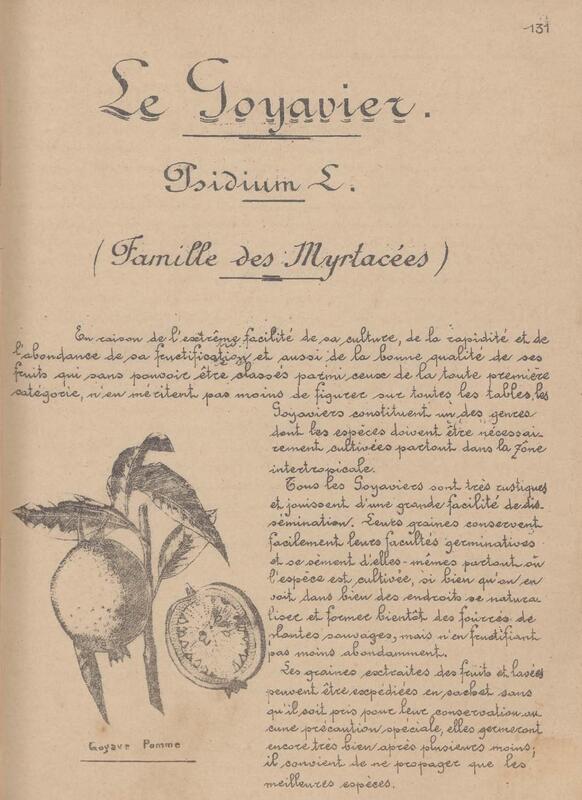 131
Le Goyavier.
Psidium L.
(Famille des Myrtacées)
En raison de l'extrême facilité de sa culture, de la rapidité et de
l'abondance de sa fructification et aussi de la bonne qualité de ses
fruits qui sans pouvoir être classés parmi ceux de la toute première
catégorie, n'en méritent pas moins de figurer sur toutes les tables, les
Goyaviers constituent un des genres
dont les espèces doivent être nécessai-
rement cultivées partout dans la zône
intertropicale.
Tous les Goyaviers sont très rustiques
et jouissent d'une grande facilité de dis-
sémination. Leurs graines conservent
facilement leurs facultés germinatives
et se sèment d'elles-mêmes partout où
l'espèce est cultivée, si bien qu'on en
voit dans bien des endroits se natura-
liser et former bientôt des fourrés de
plantes sauvages, mais n'en fructifiant
pas moins abondamment.
Les graines extraites des fruits et lavées
peuvent être expédiées en sachet sans
qu'il soit pris pour leur conservation au
cune précaution spéciale, elles germeront
encore très bien après plusieurs mois;
il convient de ne propager que les
meilleures espèces.
Goyave Pomme